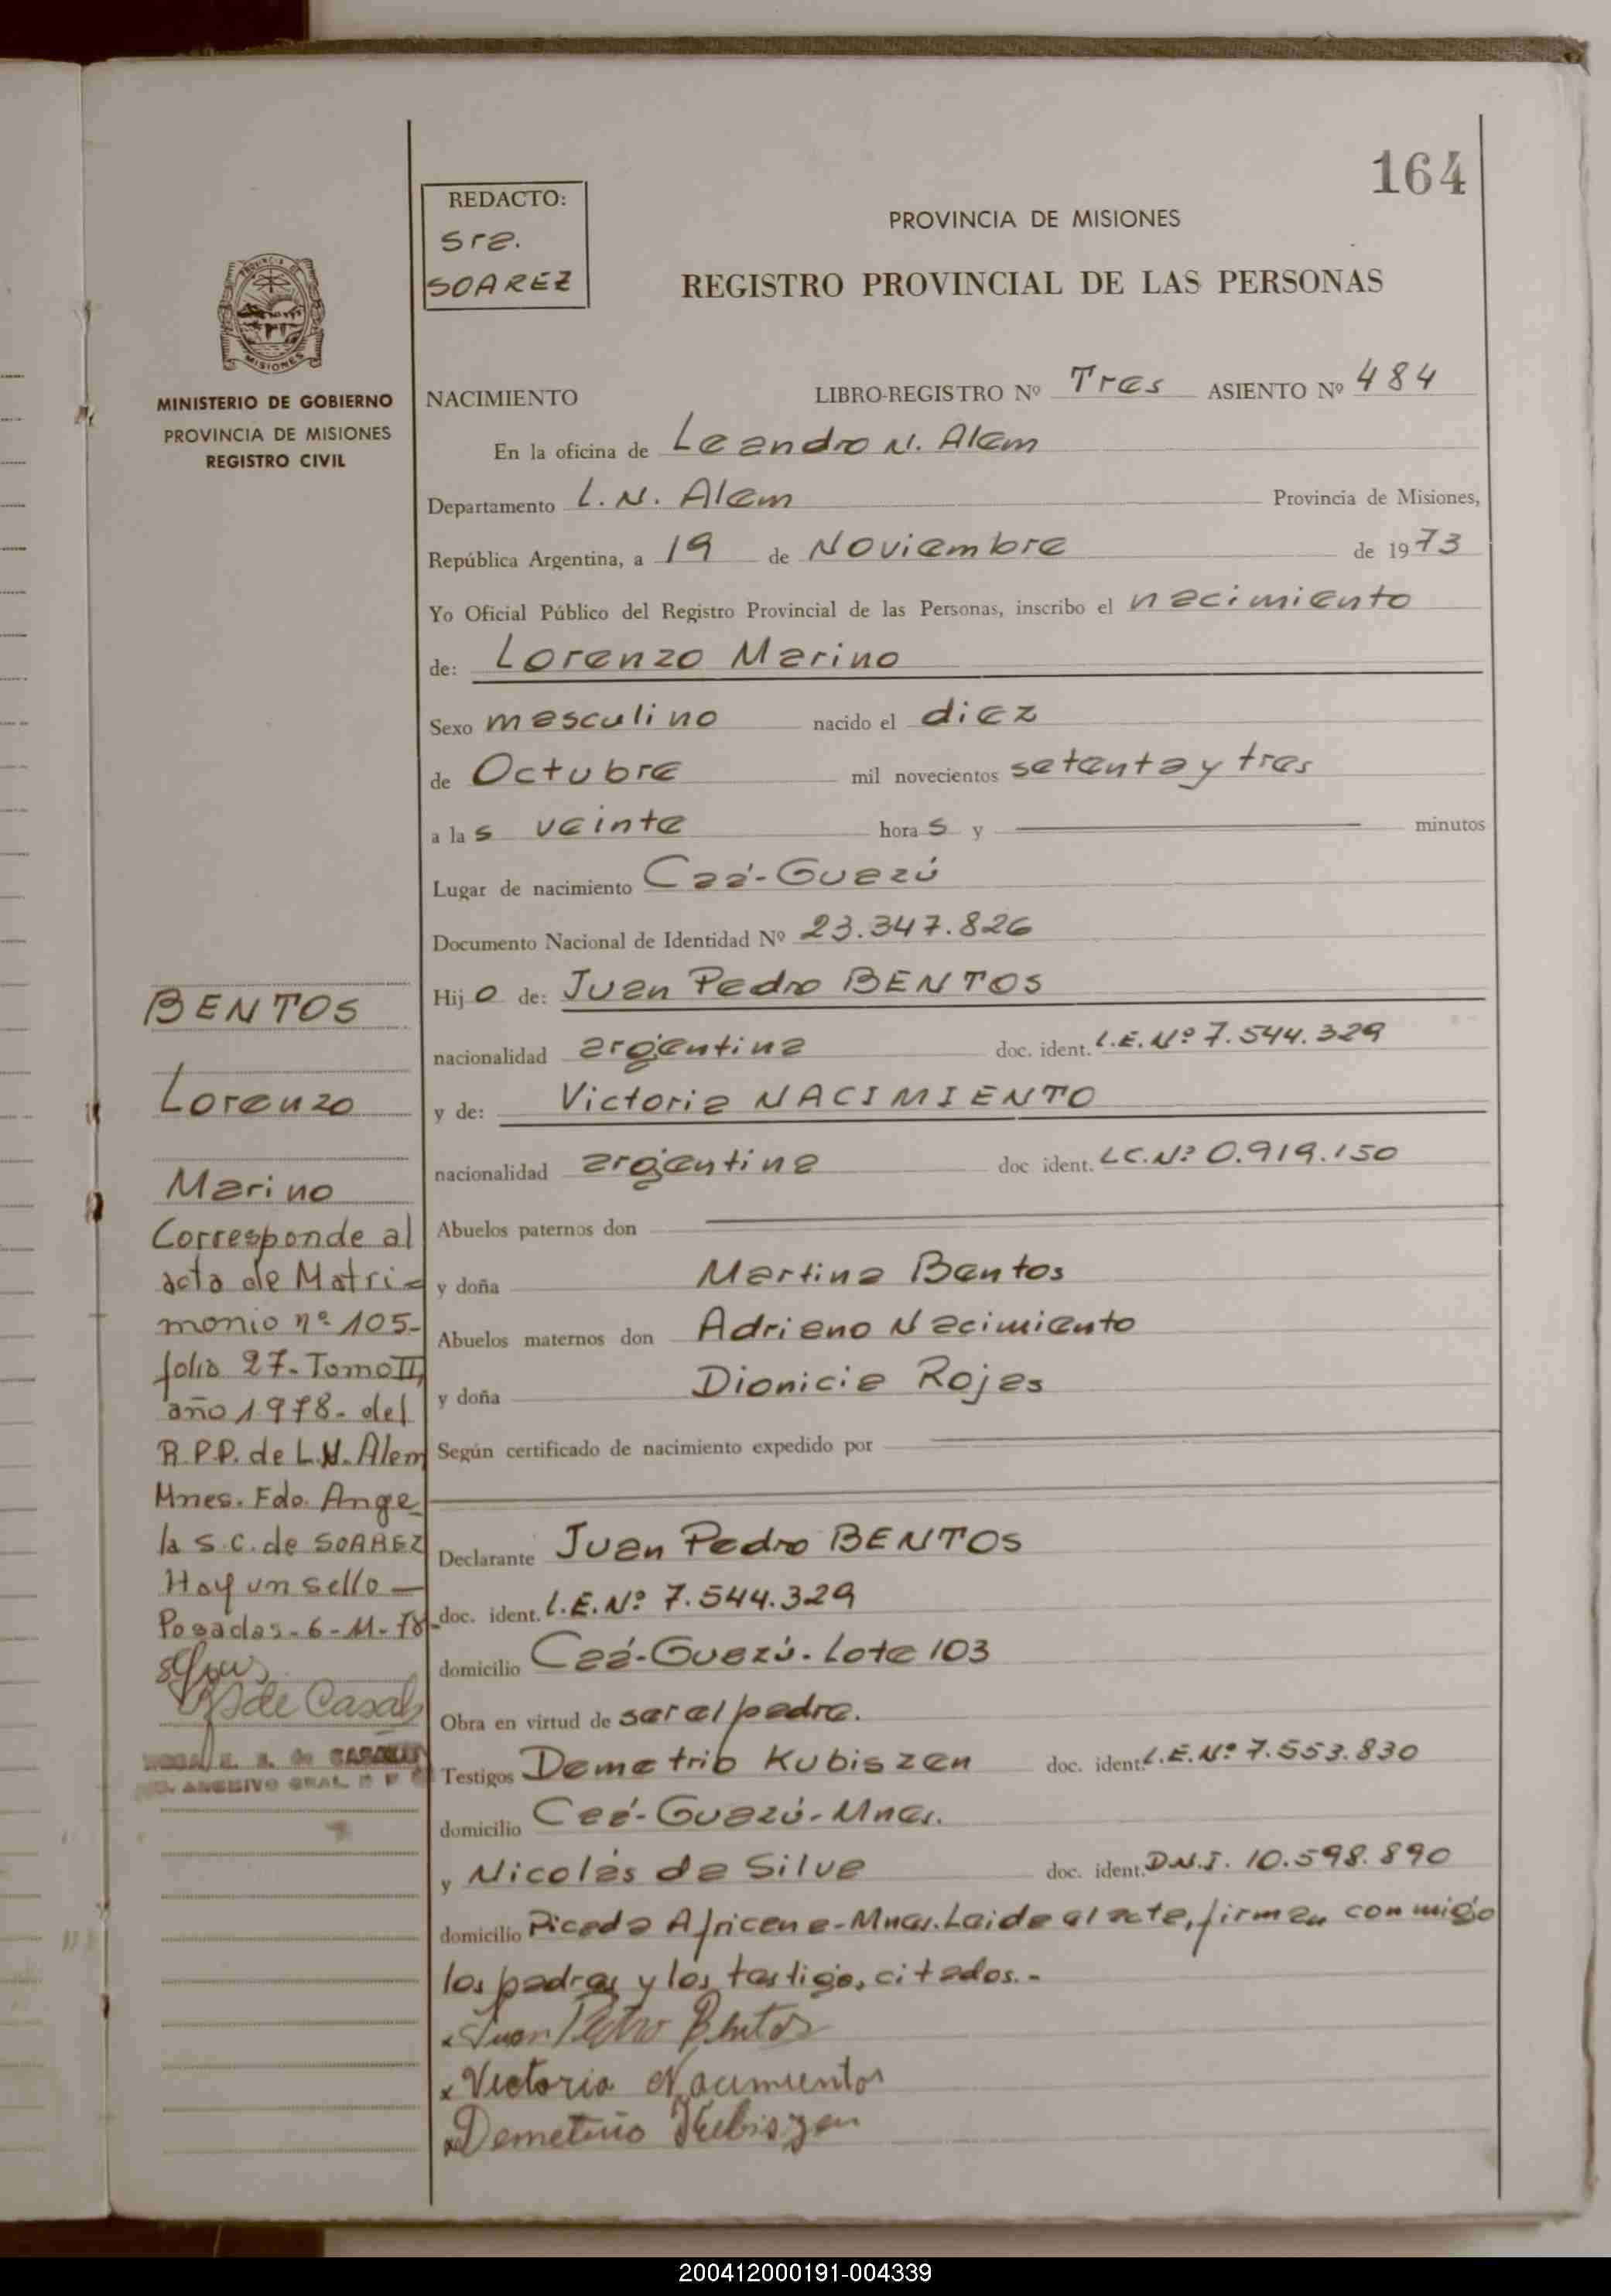 164
REDACTO:
Sra.
SOAREZ
PROVINCIA DE MISIONES
REGISTRO PROVINCIAL DE LAS PERSONAS
MISIONES
MINISTERIO DE GOBIERNO
PROVINCIA DE MISIONES
REGISTRO CIVIL
NACIMIENTO LIBRO-REGISTRO Nº Tres ASIENTO Nº 484
En la oficina de Leandro N. Alem
Departamento L. N. Alem Provincia de Misiones,
República Argentina, a 19 de Noviembre de 1973
Yo Oficial Público del Registro Provincial de las Personas, inscribo el nacimiento
de: Lorenzo Marino
Sexo masculino nacido el diez
de Octubre mil novecientos setenta y tres
a las veinte horas y minutos
Lugar de nacimiento Caá-Guazú
Documento Nacional de Identidad Nº 23.347.826
Hijo de: Juan Pedro BENTOS
nacionalidad argentina doc. ident. L.E. Nº 7.544.329
y de: Victoria NACIMIENTO
nacionalidad argentina doc ident. L.C. Nº 0.919.150
Abuelos paternos don
y doña Martina Bentos
Abuelos maternos don Adriano Nacimiento
y doña Dionicia Rojas
Según certificado de nacimiento expedido por
Declarante Juan Pedro BENTOS
doc. ident. L.E. Nº 7.544.329
domicilio Caá-Guazú. Lote 103
Obra en virtud de ser el padre.
Testigos Demetrio Kubiszen doc. ident. L.E. Nº 7.553.830
domicilio Caá-Guazú-Mnes.
y Nicolás da Silva doc. ident. D.N.I. 10.598.890
domicilio Picada Africana-Mnes. Leida el acta, firman conmigo
los padres y los testigos citados.-
x Juan Pedro Bentos
x Victoria Nacimiento
x Demetrio Kubiszen
BENTOS
Lorenzo
Marino
Corresponde al
acta de Matri-
monio nº 105-
folio 27-Tomo II,
año 1978- del
R.P.P. de L.N. Alem
Mnes. Fdo. Ange
la S.C. de SOAREZ
Hay un sello —
Posadas-6-11-78-
de Casal
200412000191-004339